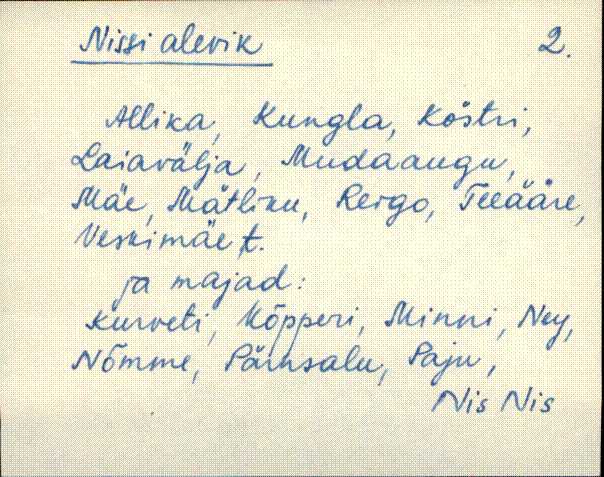 Nissi alevik 2.
Allika, Kungla, Köstri,
Laiavälja, Mudaaugu,
Mäe, Mätliku, Reigo, Teeääre,
Veskimäe t.
ja majad:
Kurveti, Kõpperi, Minni, Ney,
Nõmme, Pärnsalu, Paju,
Nis Nis